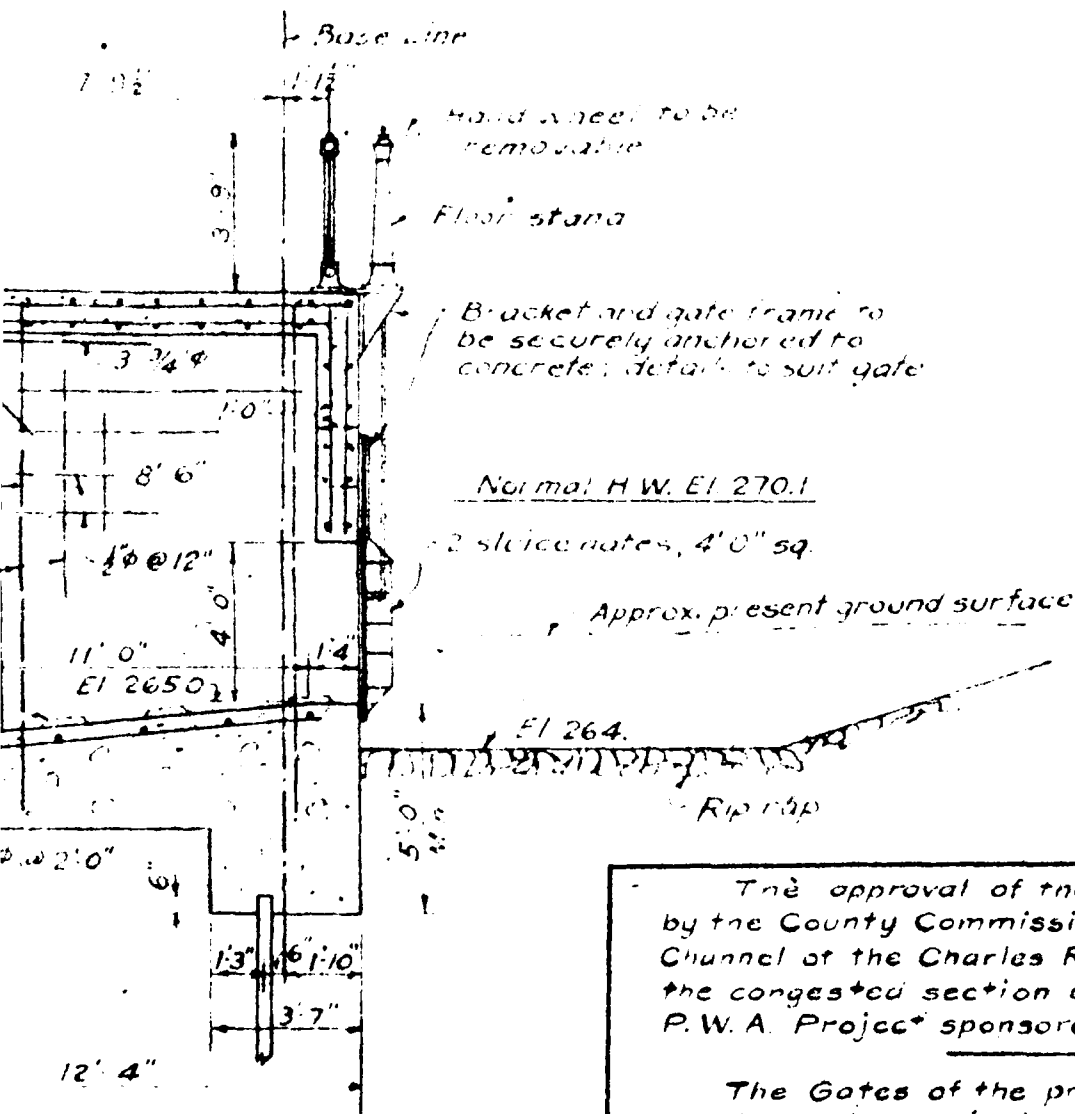 Base Line
1'-1½"
Hand wheel to be
removable
3'-9"
Floor stand
Bracket and gate frame to
be securely anchored to
concrete; details to suit gate
3 ¾"φ
1'-0"
8'-6"
Normal H.W. El. 270.1
2 sluice gates, 4'-0" sq.
½"φ@12"
4'-0"
Approx. present ground surface
11'-0"
1'-4"
El. 265.0
El. 264.
Rip rap
5'-0"
@ 2'-0"
6"
1'-3"
6"
1'-10"
3'-7"
12'-4"
The approval of the
by the County Commissi
Channel of the Charles R
the congested section
P.W.A. Project sponsore
The Gates of the pr